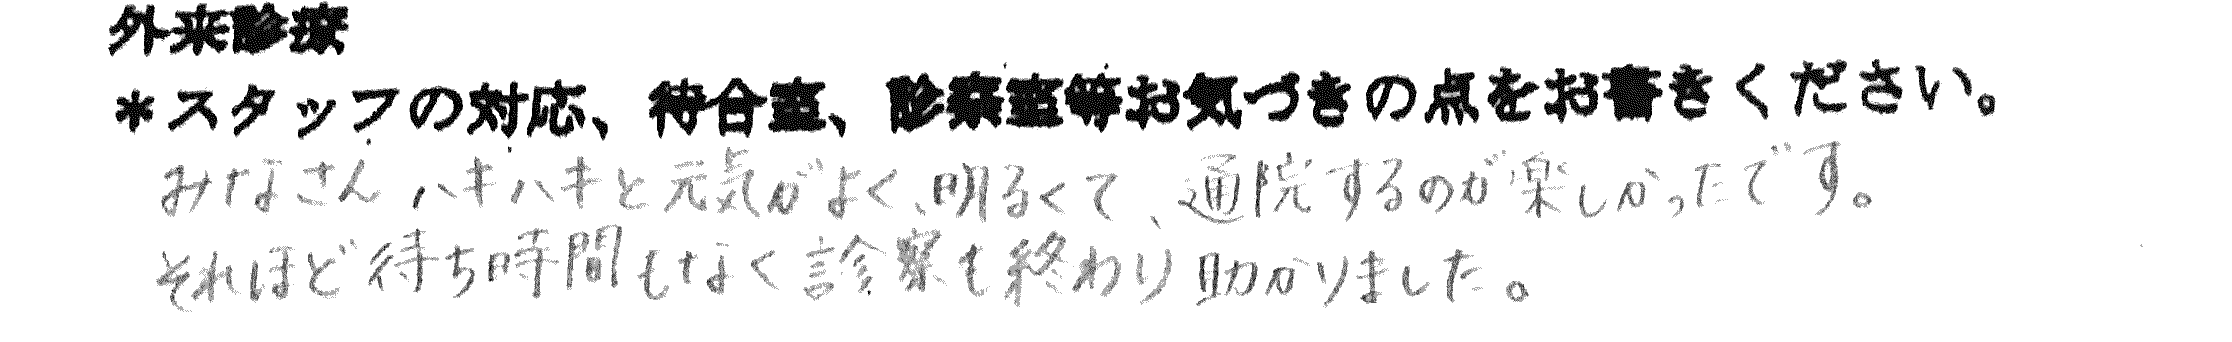 外来診療
*スタッフの対応、待合室、診察室等お気づきの点をお書きください。
みなさんハキハキと元気がよく、明るくて、通院するのが楽しかったです。
それほど待ち時間もなく診察も終わり助かりました。